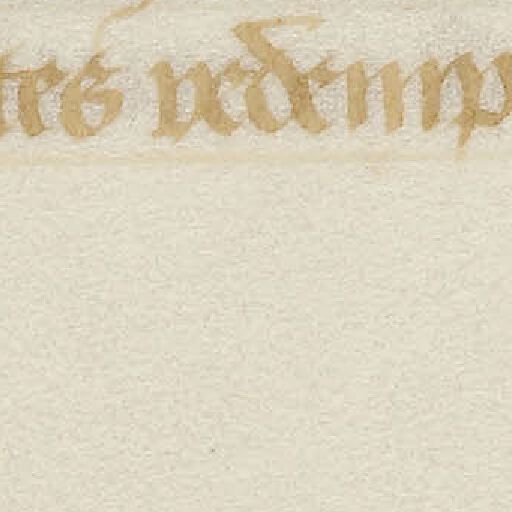 tes redemp